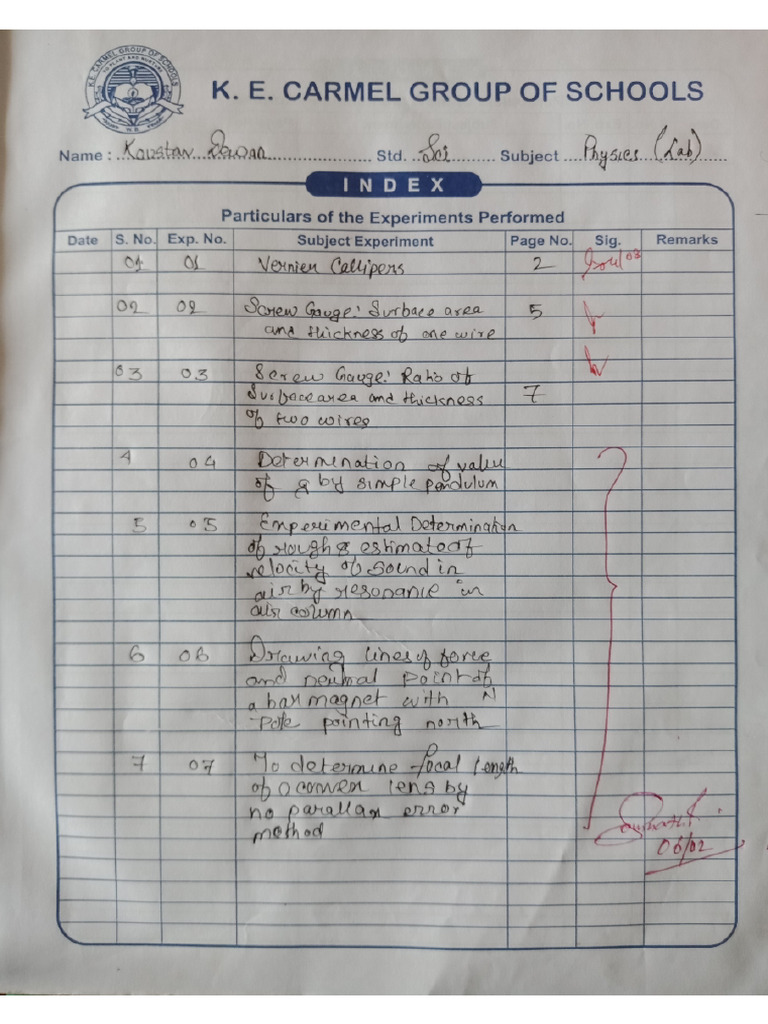 K. E. CARMEL GROUP OF SCHOOLS
K. E. CARMEL GROUP OF SCHOOLS
Name : Koustav Dewan Std. Sci Subject Physics (Lab)
INDEX
Particulars of the Experiments Performed
Date S. No. Exp. No. Subject Experiment Page No. Sig. Remarks
01 01 Vernier Callipers 2
02 02 Screw Gauge: Surbace area 5
and thickness of one wire
03 03 Screw Gauge: Ratio of
Surbace area and thickness 7
of two wires
4 04 Determination of value
of g by simple pendulum
5 05 Experimental Determination
of rough & estimate of
velocity of sound in
air by resonance in
air column
6 06 Drawing lines of force
and neutral point of
a bar magnet with N
Pole pointing north
7 07 To determine focal length
of a convex lens by
no parallax error
method
06/02